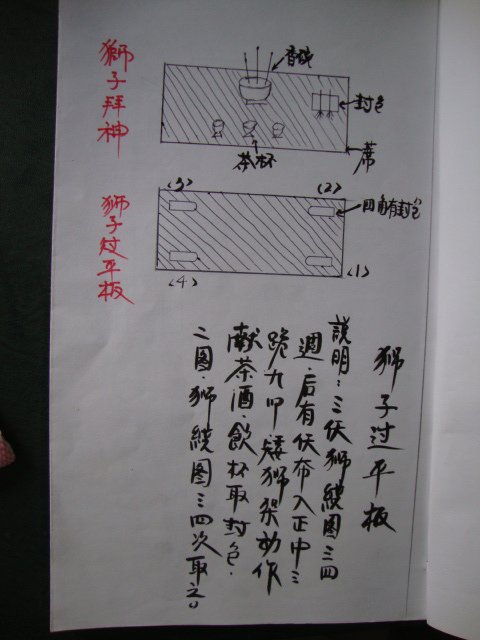 獅子拜神
香燭
封包
席
茶杯
獅子过平板
(3)
(2)
四角有封包
(4)
(1)
狮子过平板
説明：三伏狮繞圍三四
週．后有伏布入正中三
跪九叩矮狮架动作
献茶酒．飲杯取封包．
二图．狮繞图三四次取之。